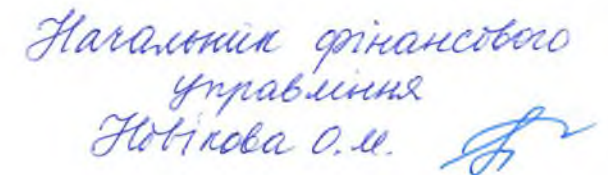 Начальник фінансового
управління
Новікова О.М.